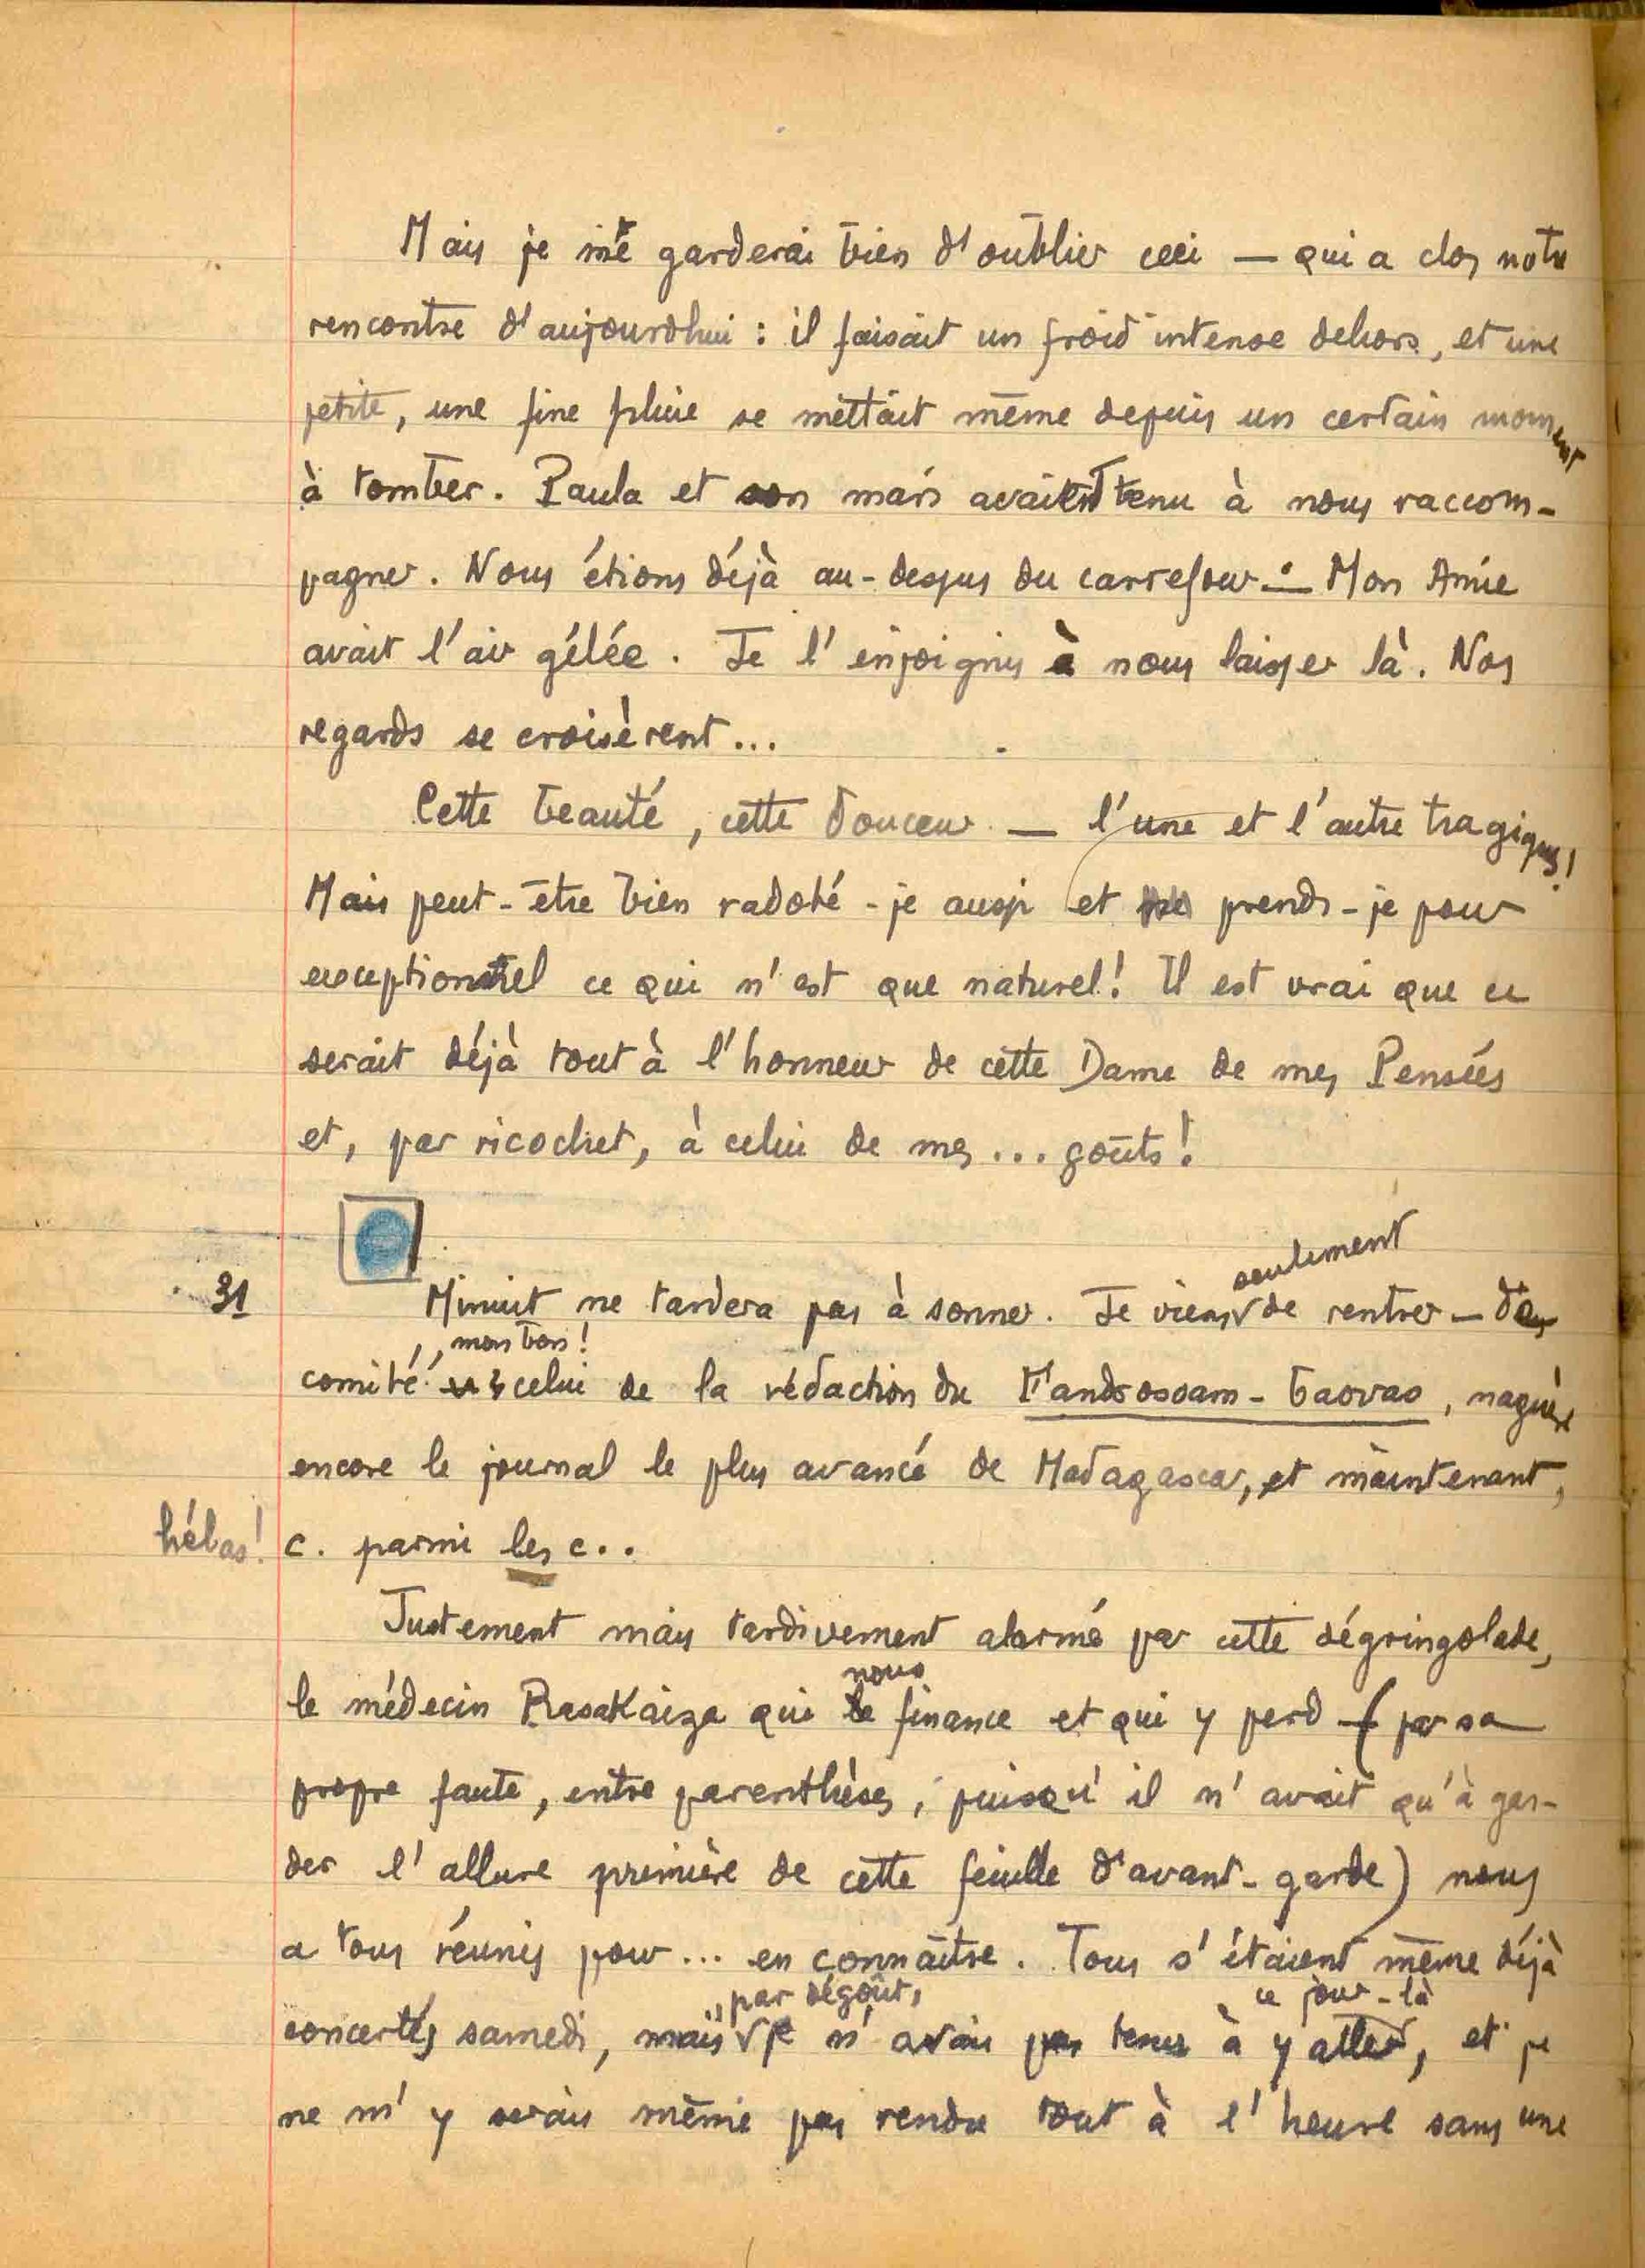 Mais je me garderai bien d'oublier ceci — qui a clos notre
rencontre d'aujourd'hui : il faisait un froid intense dehors, et une
petite, une fine pluie se mettait même depuis un certain moment
à tomber. Paula et son mari avaient tenu à nous raccom-
pagner. Nous étions déjà au-dessus du carrefour. — Mon Amie
avait l'air gélée. Je l'enjoignis à nous laisser là. Nos
regards se croisèrent...
Cette beauté, cette douceur — l'une et l'autre tragiques !
Mais peut-être bien radoté-je aussi et prends-je pour
exceptionnel ce qui n'est que naturel ! Il est vrai que ce
serait déjà tout à l'honneur de cette Dame de mes Pensées
et, par ricochet, à celui de mes ... goûts !
seulement
31 Minuit ne tardera pas à sonner. Je viens de rentrer — de
, mon bon !
comité celui de la rédaction du Fandrosoam-baovao, naguère
encore le journal le plus avancé de Madagascar, et maintenant,
hélas ! c. parmi les c..
Justement mais tardivement alarmé par cette dégringolade,
nous
le médecin Rasakaiza qui finance et qui y perd — (par sa
propre faute, entre parenthèses, puisqu'il n'avait qu'à gar-
der l'allure première de cette feuille d'avant-garde) nous
a tous réunis pour ... en connaître. Tous s'étaient même déjà
, par dégoût, ce jour-là
concertés samedi, mais je n'avais pas tenu à y aller, et je
ne m'y serais même pas rendu tout à l'heure sans une